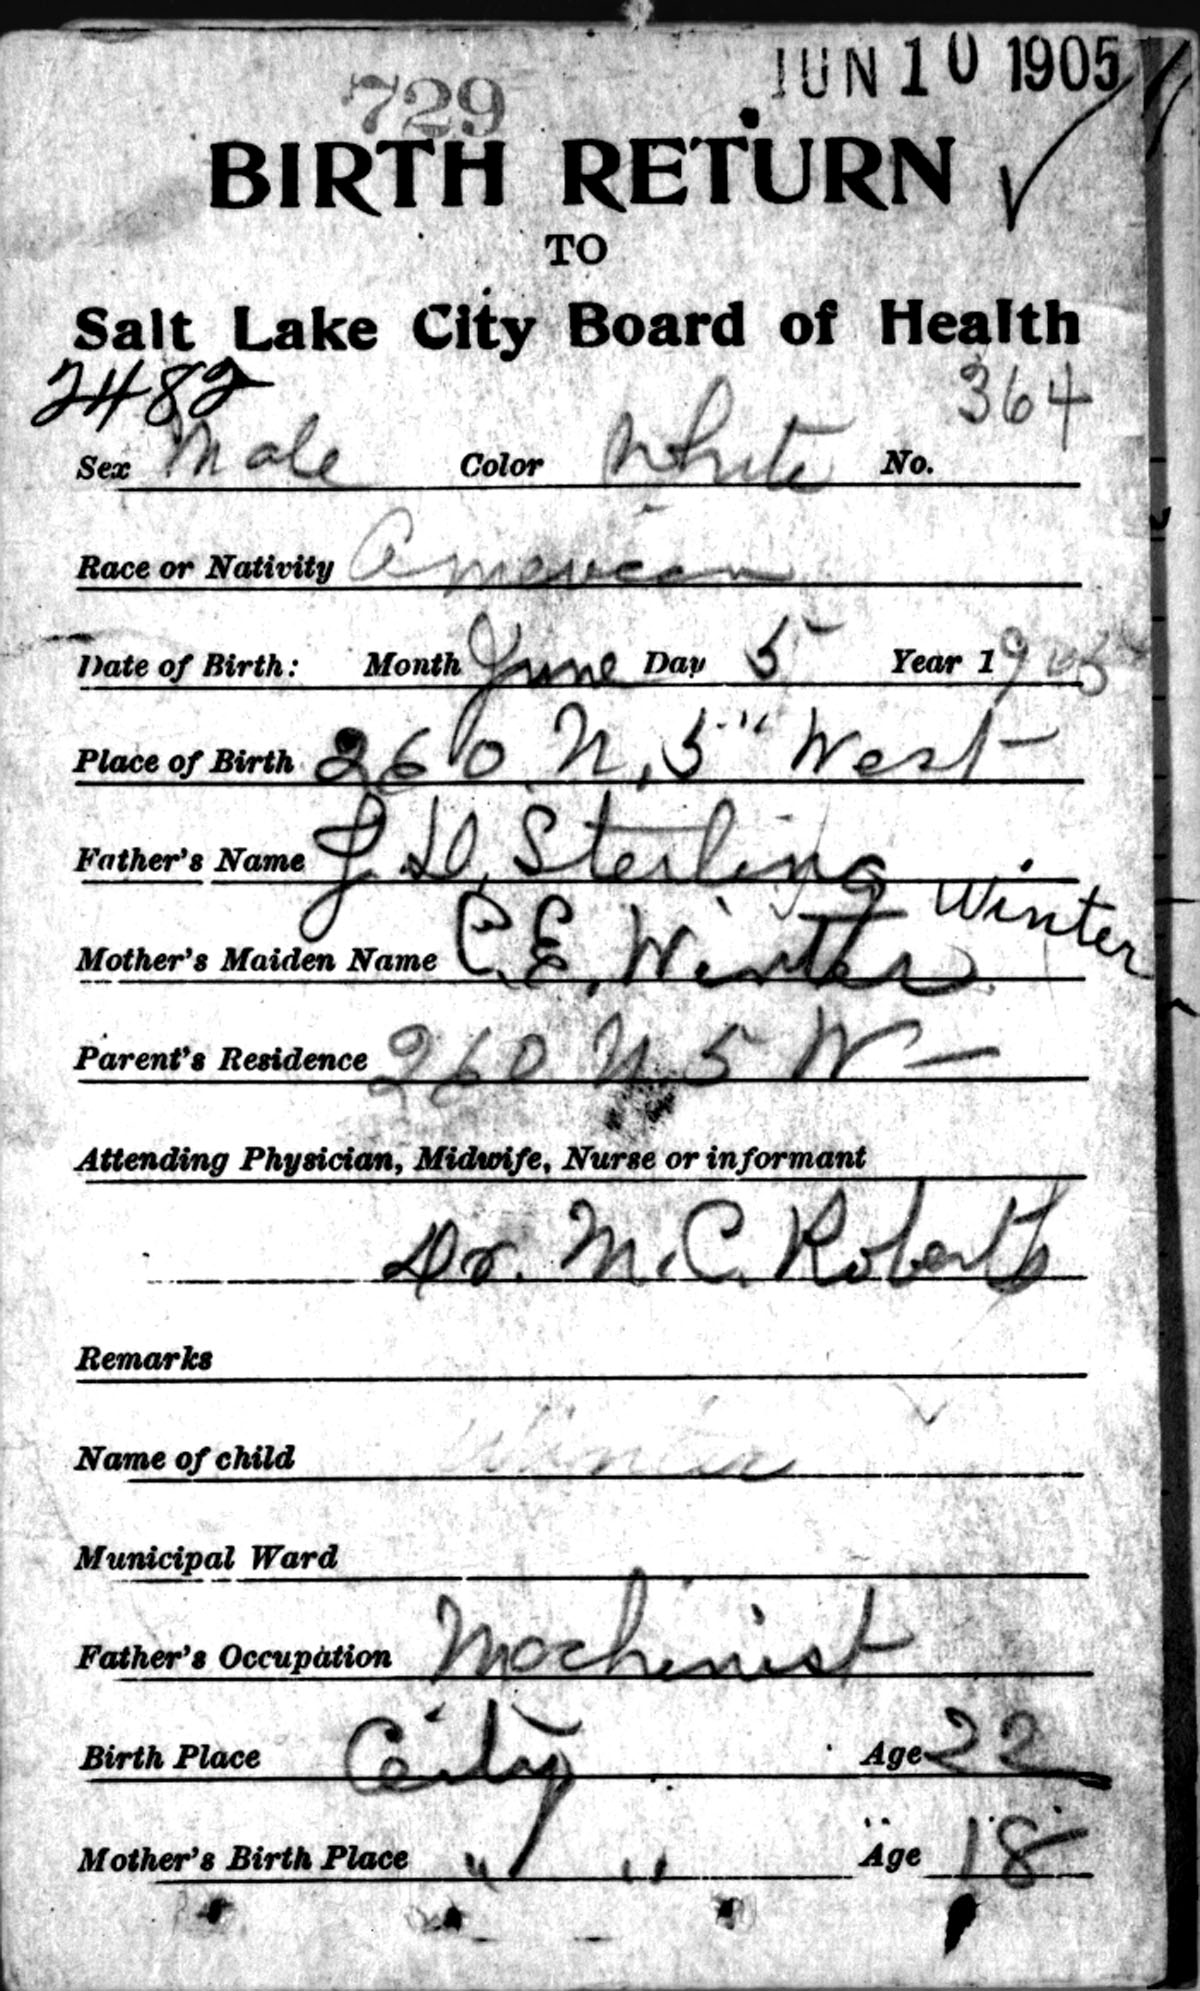 JUN 10 1905
729
BIRTH RETURN
TO
Salt Lake City Board of Health
2482
364
Sex Male Color White No.
Race or Nativity American
Date of Birth: Month June Day 5 Year 1905
Place of Birth 260 N. 5" West
Father's Name J. D. Sterling
Winter
Mother's Maiden Name C. E. Winter
Parent's Residence 260 N 5 W
Attending Physician, Midwife, Nurse or informant
Dr. M. C. Roberts
Remarks
Name of child Winter
Municipal Ward
Father's Occupation Machinist
Birth Place City Age 22
Mother's Birth Place " " Age 18